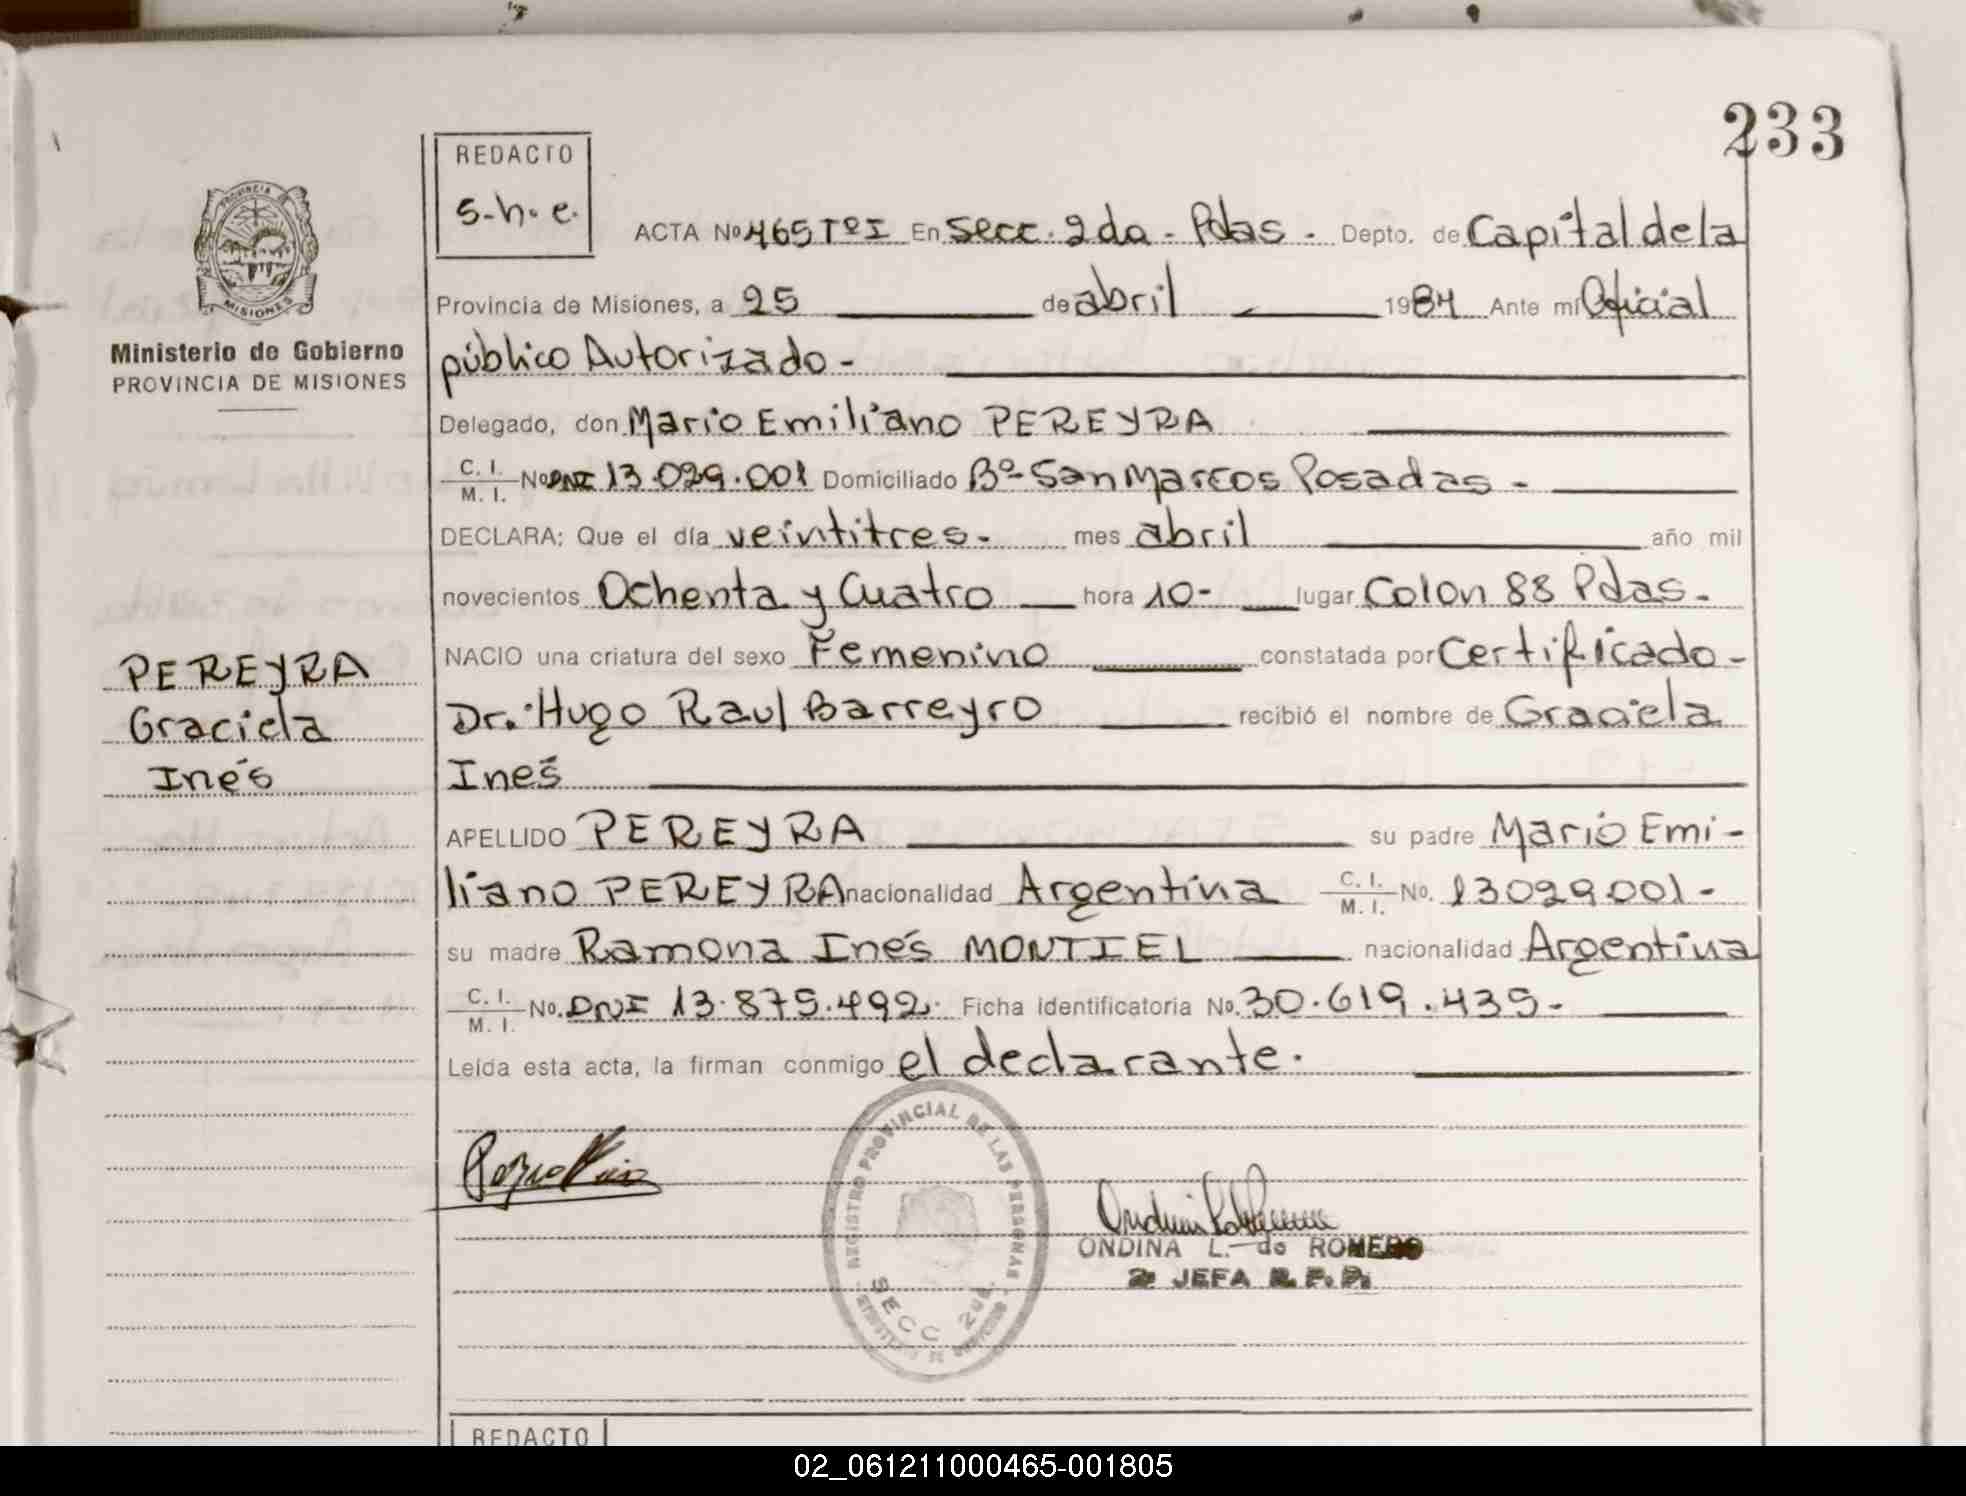 233
REDACTO
S-h.e.
PROVINCIA
MISIONES
Ministerio de Gobierno
PROVINCIA DE MISIONES
ACTA Nº 465 Tº I En Secc. 2da - Pdas - Depto. de Capital de la
Provincia de Misiones, a 25 de abril 1984 Ante mí Oficial
público Autorizado -
Delegado, don Mario Emiliano PEREYRA
C. I. / M. I. Nº DNI 13.029.001 Domiciliado Bº San Marcos Posadas -
DECLARA: Que el día veintitres - mes abril año mil
novecientos Ochenta y Cuatro hora 10- lugar Colon 88 Pdas-
NACIO una criatura del sexo Femenino constatada por Certificado-
Dr. Hugo Raul Barreyro recibió el nombre de Graciela
Inés
PEREYRA
Graciela
Inés
APELLIDO PEREYRA su padre Mario Emi-
liano PEREYRA nacionalidad Argentina C. I. / M. I. No. 13029001-
su madre Ramona Inés MONTIEL nacionalidad Argentina
C. I. / M. I. No. DNI 13.875.492. Ficha identificatoria No. 30.619.435-
Leída esta acta, la firman conmigo el declarante.
REGISTRO PROVINCIAL DE LAS PERSONAS
SECC 2da
ONDINA L. de ROMERO
2º JEFA R. P. P.
REDACTO
02_061211000465-001805